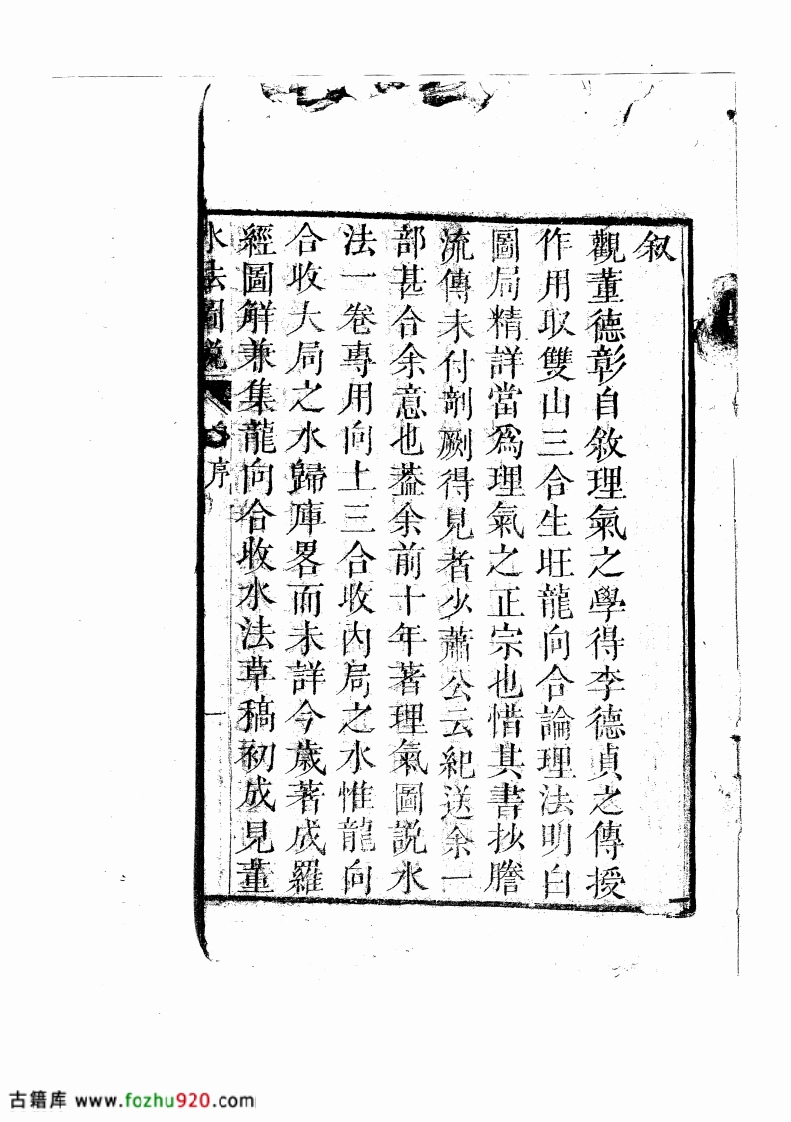 叙
觀董德彰自敘理氣之學得李德貞之傳授
作用取雙山三合生旺龍向合論理法明白
圖局精詳當爲理氣之正宗也惜其書抄謄
流傳未付剞劂得見者少蕭公云紀送余一
部甚合余意也葢余前十年著理氣圖說水
法一卷專用向上三合收內局之水惟龍向
合收大局之水歸庫畧而未詳今歲著成羅
經圖解兼集龍向合收水法草稿初成見董
水法圖說 序 一
古籍库 www.fozhu920.com